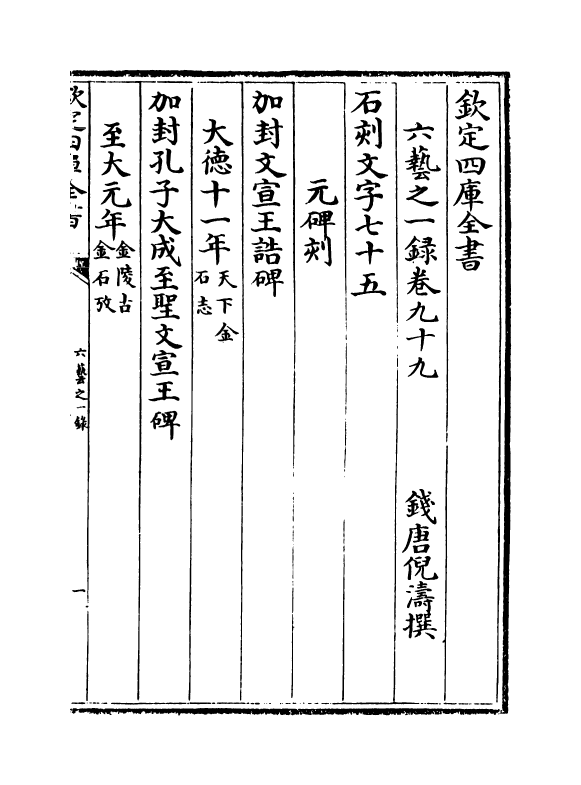 欽定四庫全書
六藝之一録卷九十九
錢唐倪濤撰
石刻文字七十五
元碑刻
加封文宣王誥碑
大徳十一年天下金石志
加封孔子大成至聖文宣王碑
至大元年金陵古金石攷
六藝之一錄
一